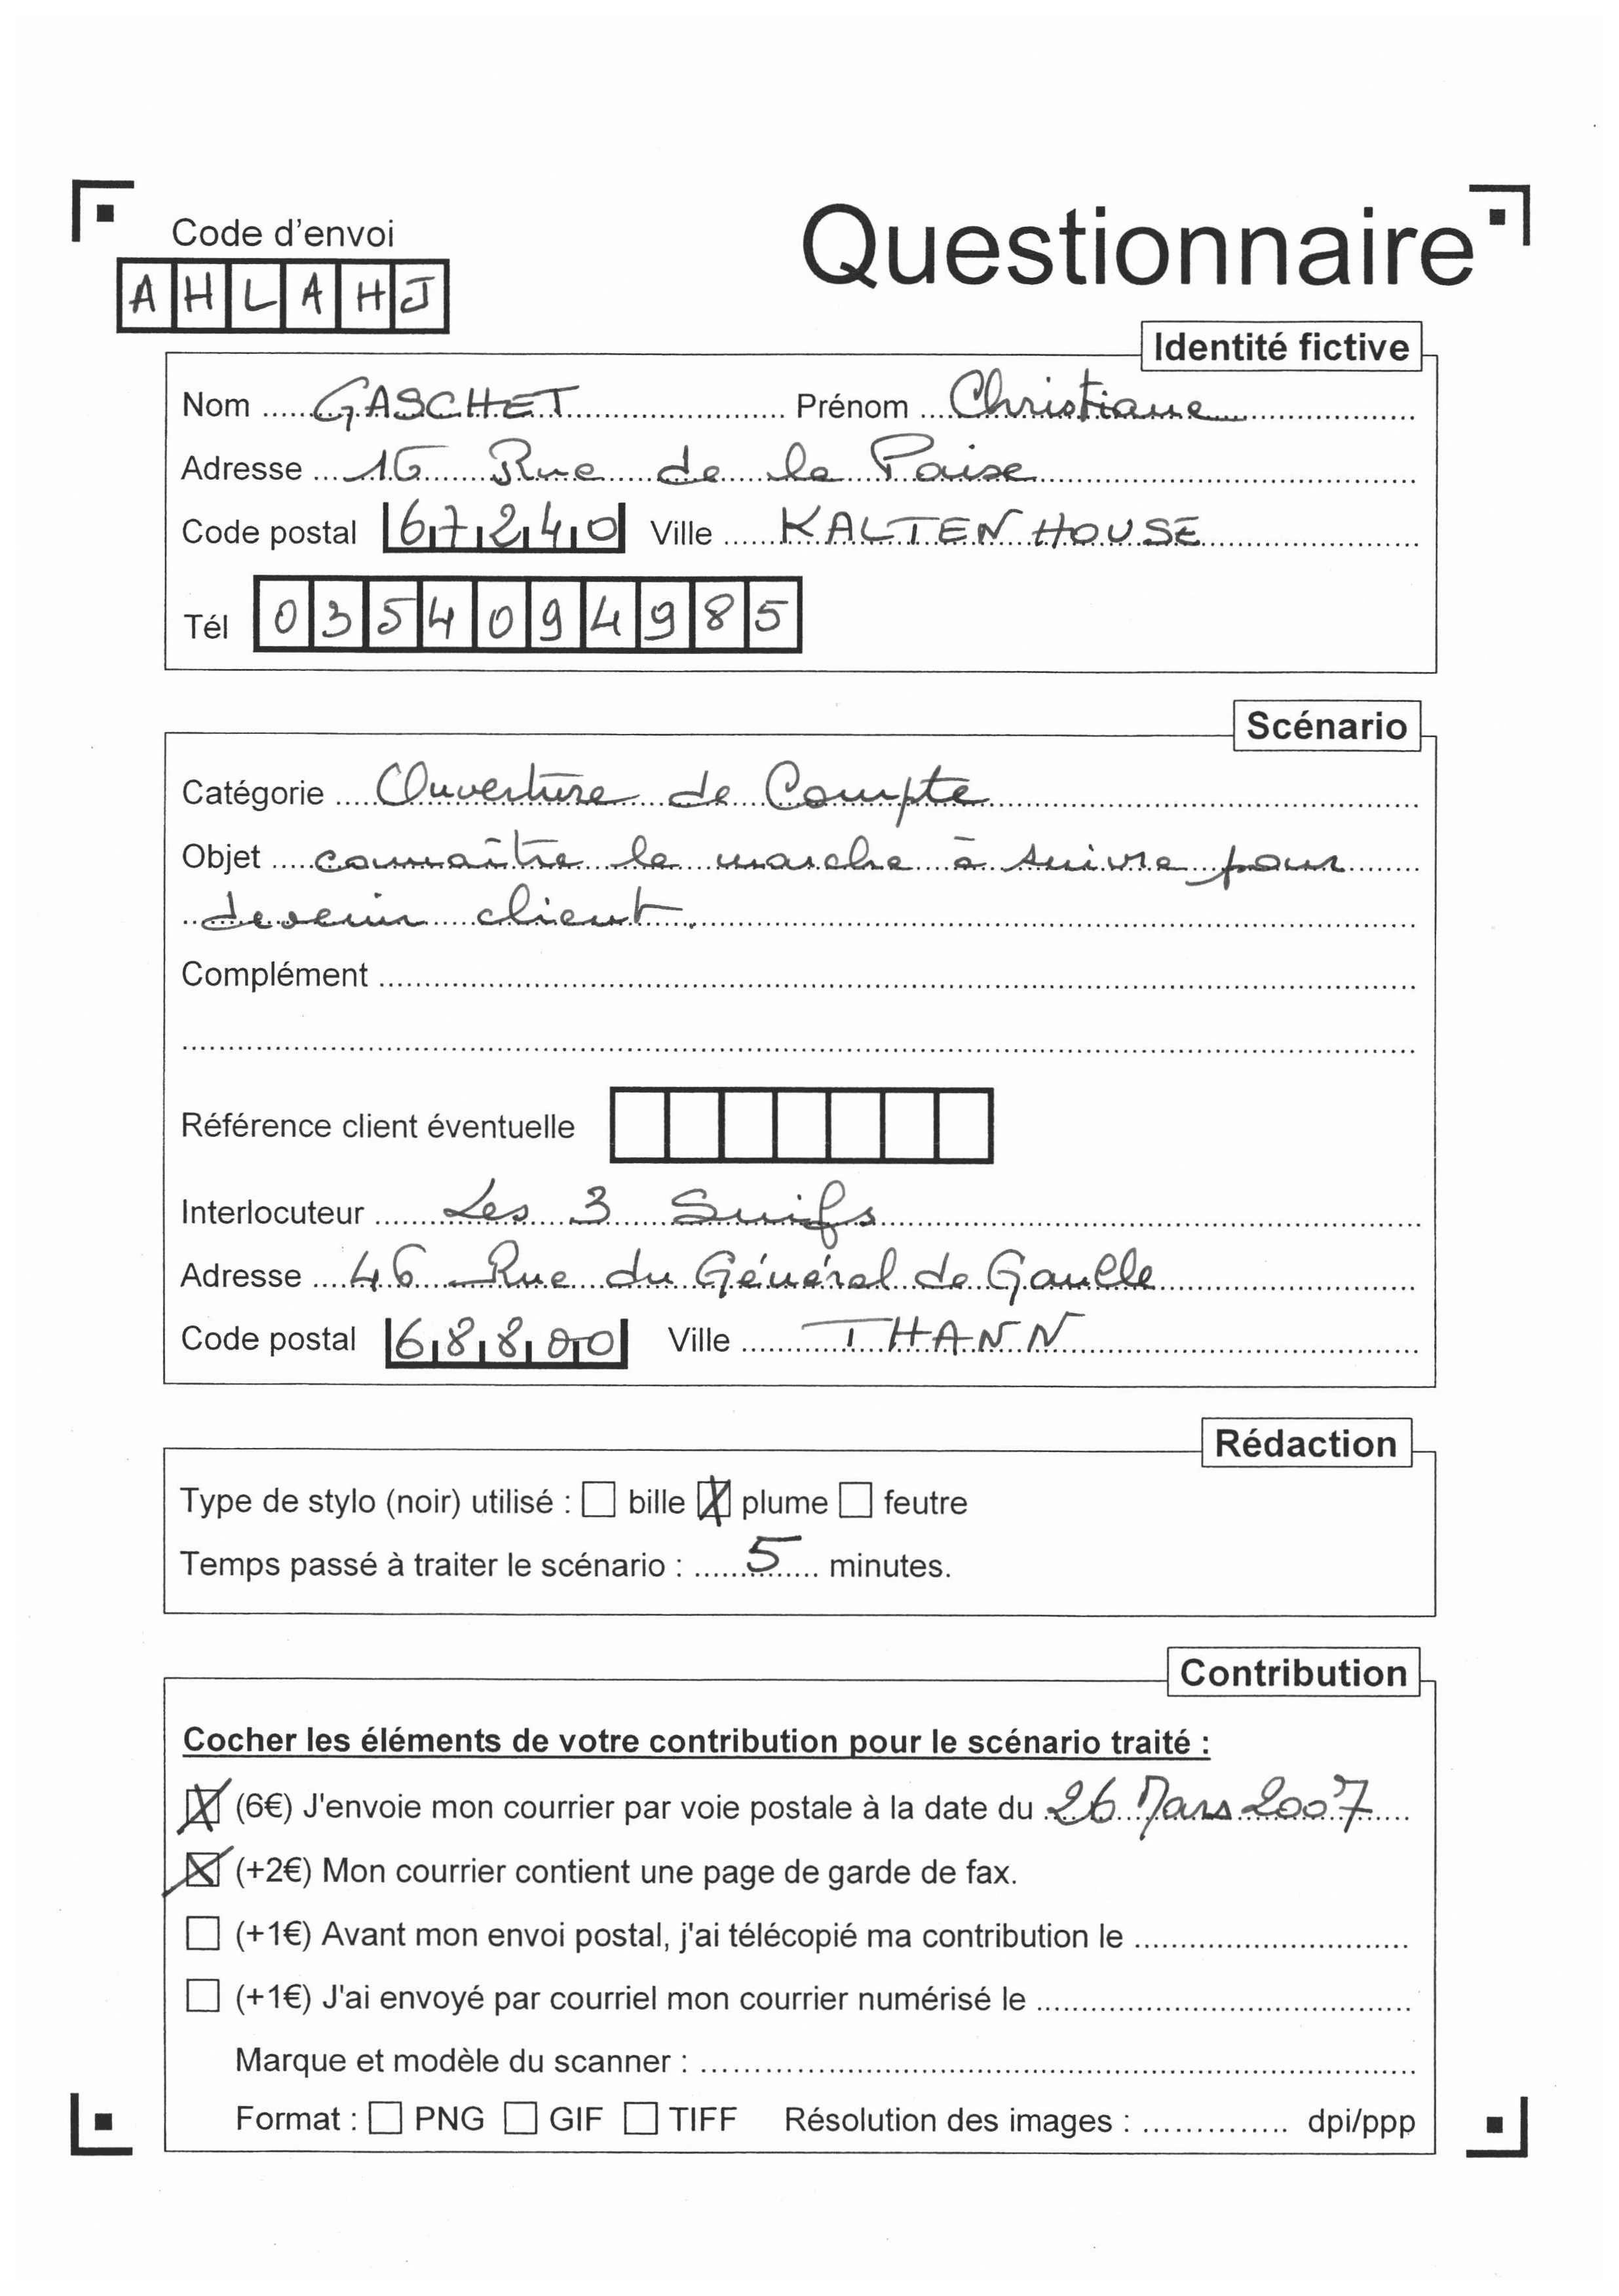 Code d'envoi
Questionnaire
AHLAHJ
Identité fictive
Nom GASCHET Prénom Christiane
Adresse 16 Rue de la Paise
Code postal 67240 Ville KALTENHOUSE
Tél 0354094985
Scénario
Catégorie Ouverture de Compte
Objet connaître la marche à suivre pour
devenir client.
Complément
Référence client éventuelle
Interlocuteur Les 3 Suifs
Adresse 46 Rue du Général de Gaulle
Code postal 68800 Ville THANN
Rédaction
Type de stylo (noir) utilisé : bille plume feutre
Temps passé à traiter le scénario : 5 minutes.
Contribution
Cocher les éléments de votre contribution pour le scénario traité :
(6€) J'envoie mon courrier par voie postale à la date du 26 Mars 2007
(+2€) Mon courrier contient une page de garde de fax.
(+1€) Avant mon envoi postal, j'ai télécopié ma contribution le
(+1€) J'ai envoyé par courriel mon courrier numérisé le
Marque et modèle du scanner :
Format : PNG GIF TIFF Résolution des images : dpi/ppp